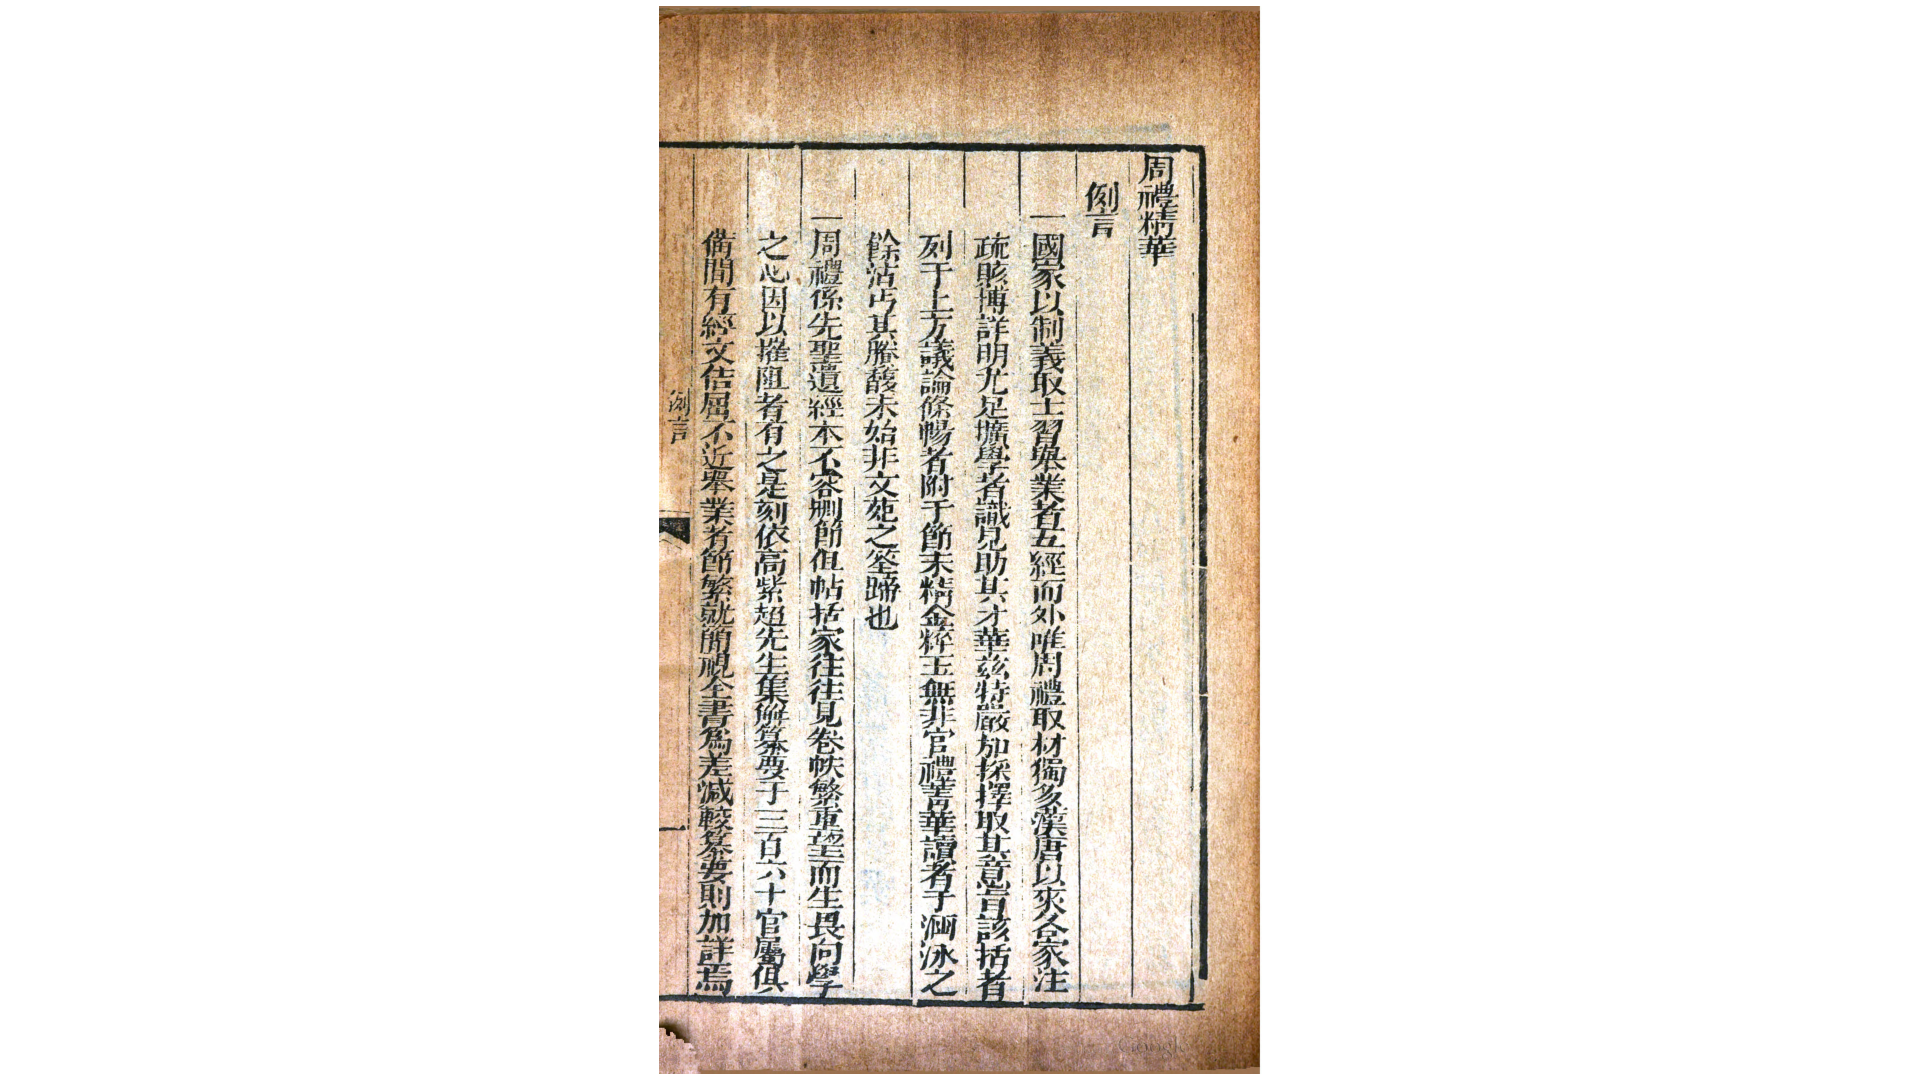 周禮精華
例言
一國家以制義取士習舉業者五經而外唯周禮取材獨多漢唐以來各家注
疏賅博詳明尤足擴學者識見助其才華茲特嚴加採擇取其意旨該括者
列于上方議論條暢者附于節末精金粹玉無非官禮菁華讀者于涵泳之
餘沾丐其賸馥未始非文苑之筌蹄也
一周禮係先聖遺經本不容刪節但帖括家往往見卷帙繁重望而生畏向學
之心因以摧阻者有之是刻依高紫超先生集解纂要于三百六十官屬俱
備間有經文佶屈不近舉業者節繁就簡視全書爲差減較纂要則加詳焉
例言
一
Google